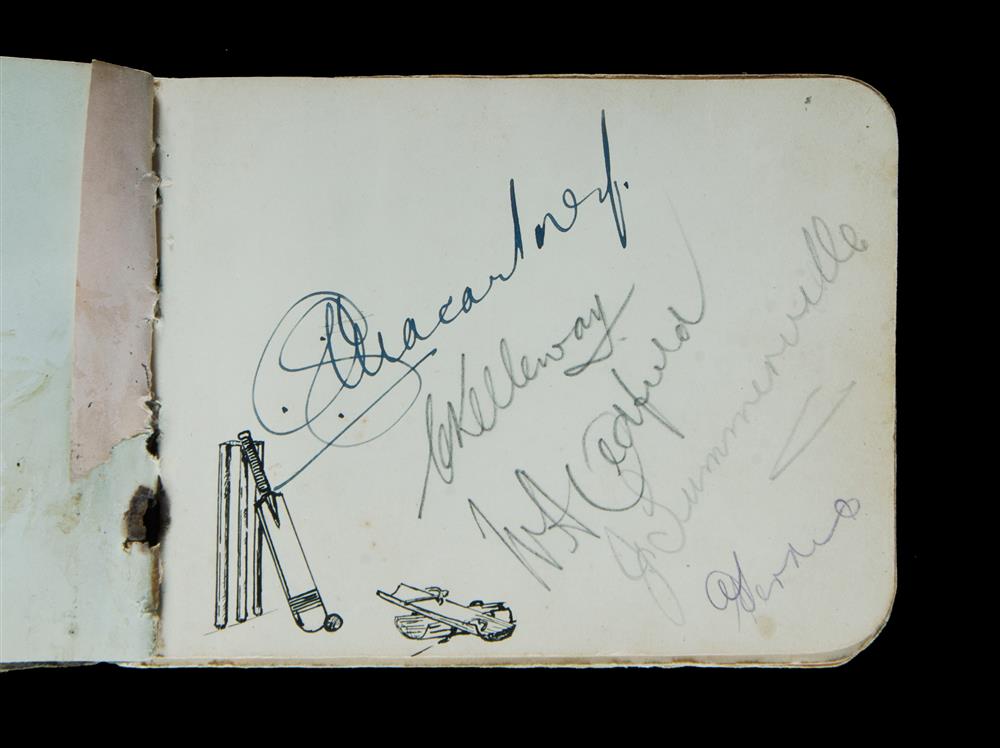 C G Macartney.
C Kelleway.
W A Oldfield
J Summerville